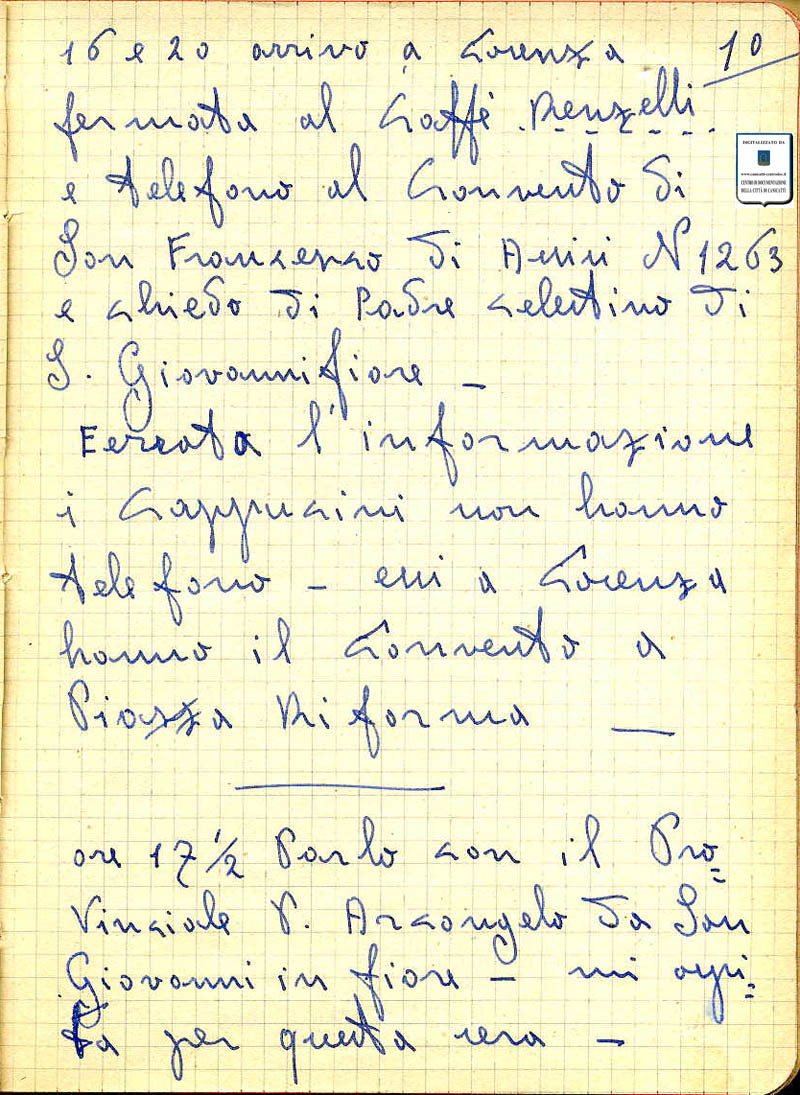 10
16 e 20 arrivo a Cosenza
fermata al Caffè Renzelli
e telefono al Convento di
San Francesco di Assisi N 1263
e chiedo di Padre Celestino di
S. Giovannifiore –
Errata l'informazione
i Cappucini non hanno
telefono – essi a Cosenza
hanno il Convento a
Piazza Riforma —
ore 17 1/2 Parlo con il Pro=
vinciale P. Arcangelo da San
Giovanni in fiore – mi ospi=
ta per questa sera –
DIGITALIZZATO DA
CENTRO DI DOCUMENTAZIONE
DELLA CITTÀ DI CANICATTÌ